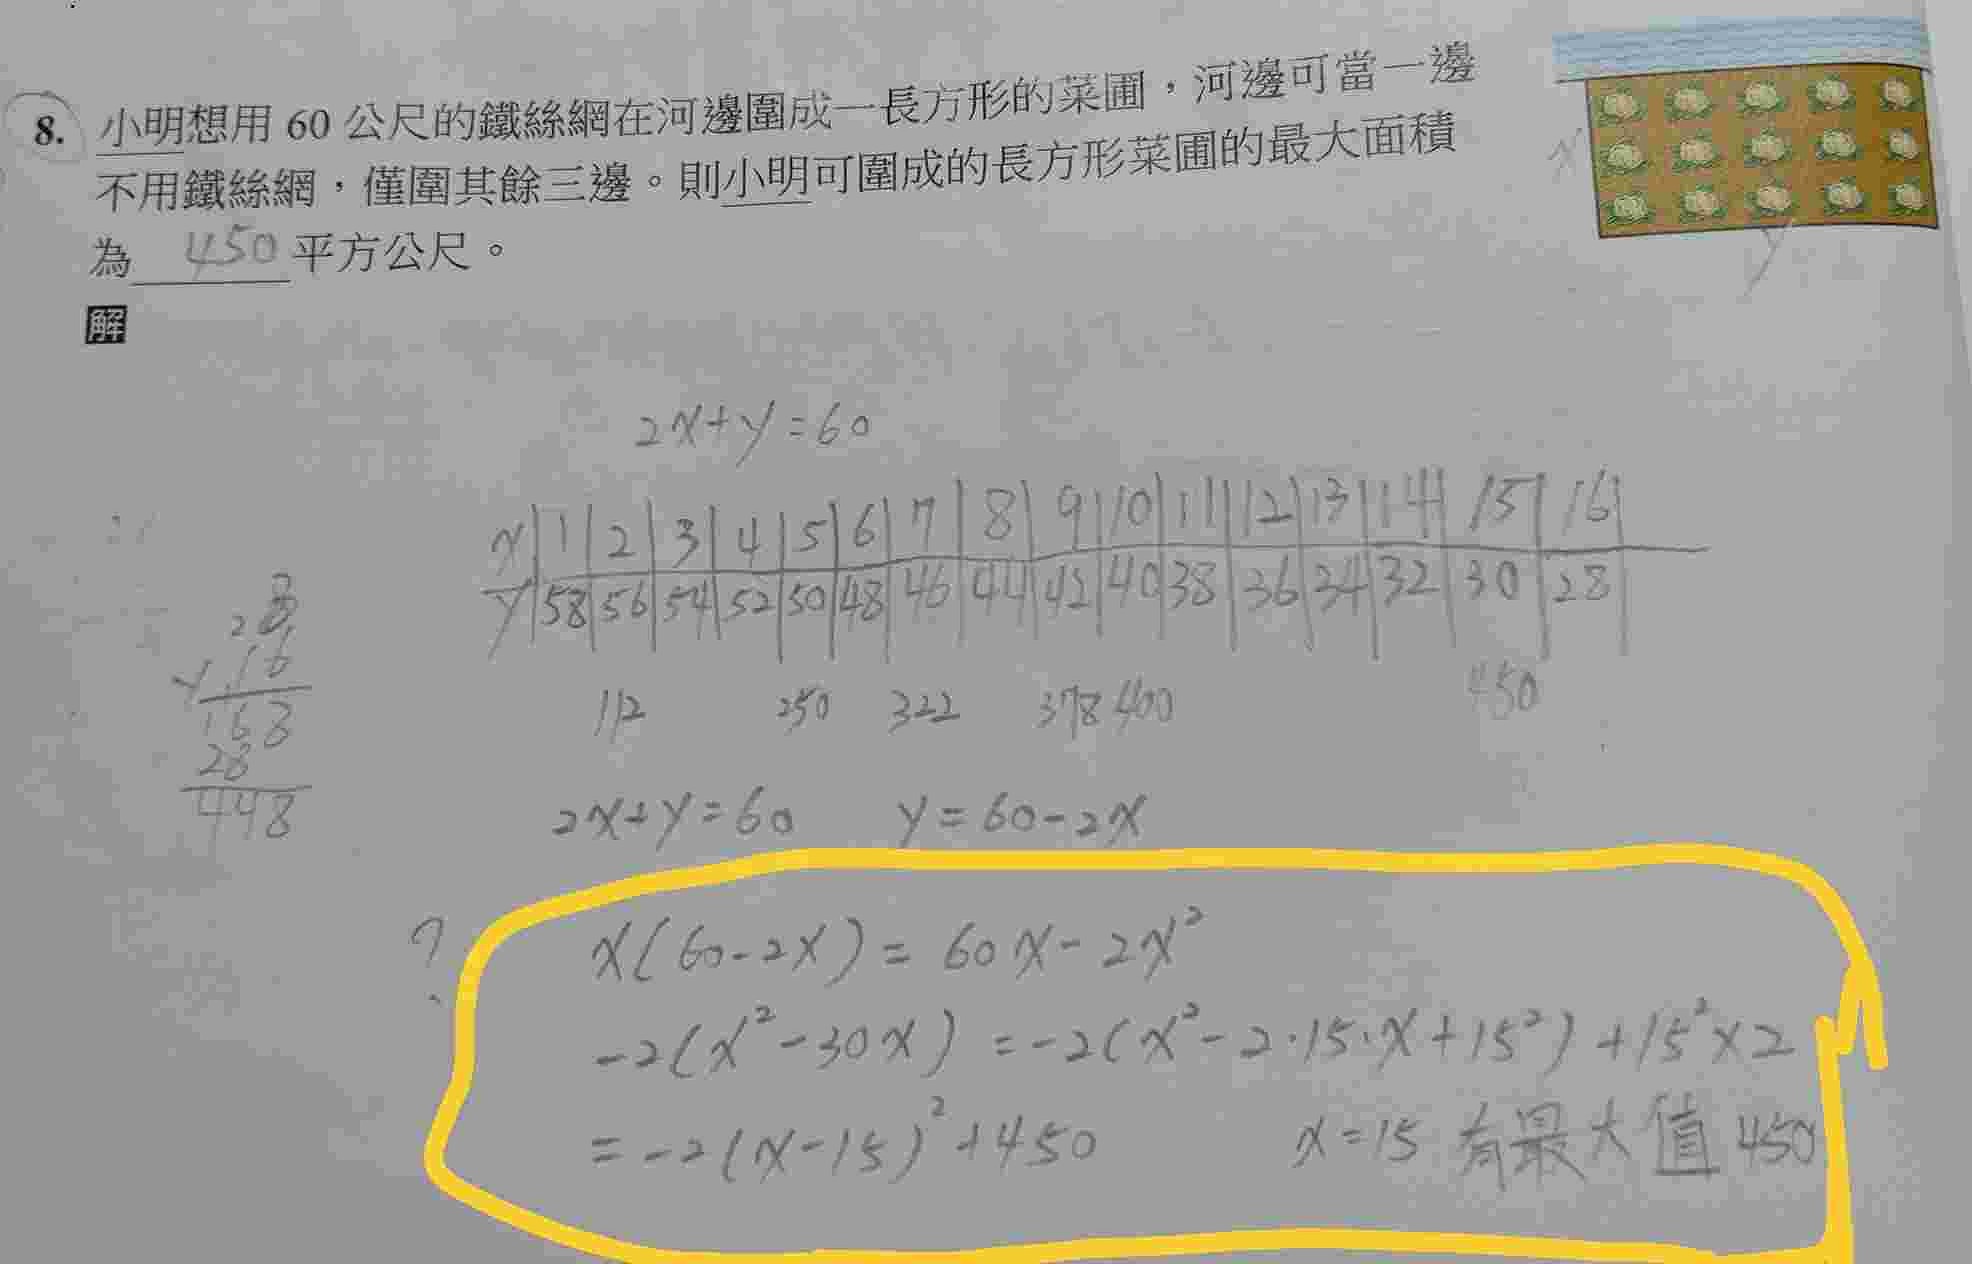 8. 小明想用 60 公尺的鐵絲網在河邊圍成一長方形的菜圃，河邊可當一邊
不用鐵絲網，僅圍其餘三邊。則小明可圍成的長方形菜圃的最大面積
為 450 平方公尺。
解
x
y
2x+y=60
x 1 2 3 4 5 6 7 8 9 10 11 12 13 14 15 16
y 58 56 54 52 50 48 46 44 42 40 38 36 34 32 30 28
112 250 322 378 400 450
28
×16
168
28
448
2x+y=60 y=60-2x
?
x(60-2x)=60x-2x²
-2(x²-30x)=-2(x²-2·15·x+15²)+15²×2
=-2(x-15)²+450 x=15 有最大值 450